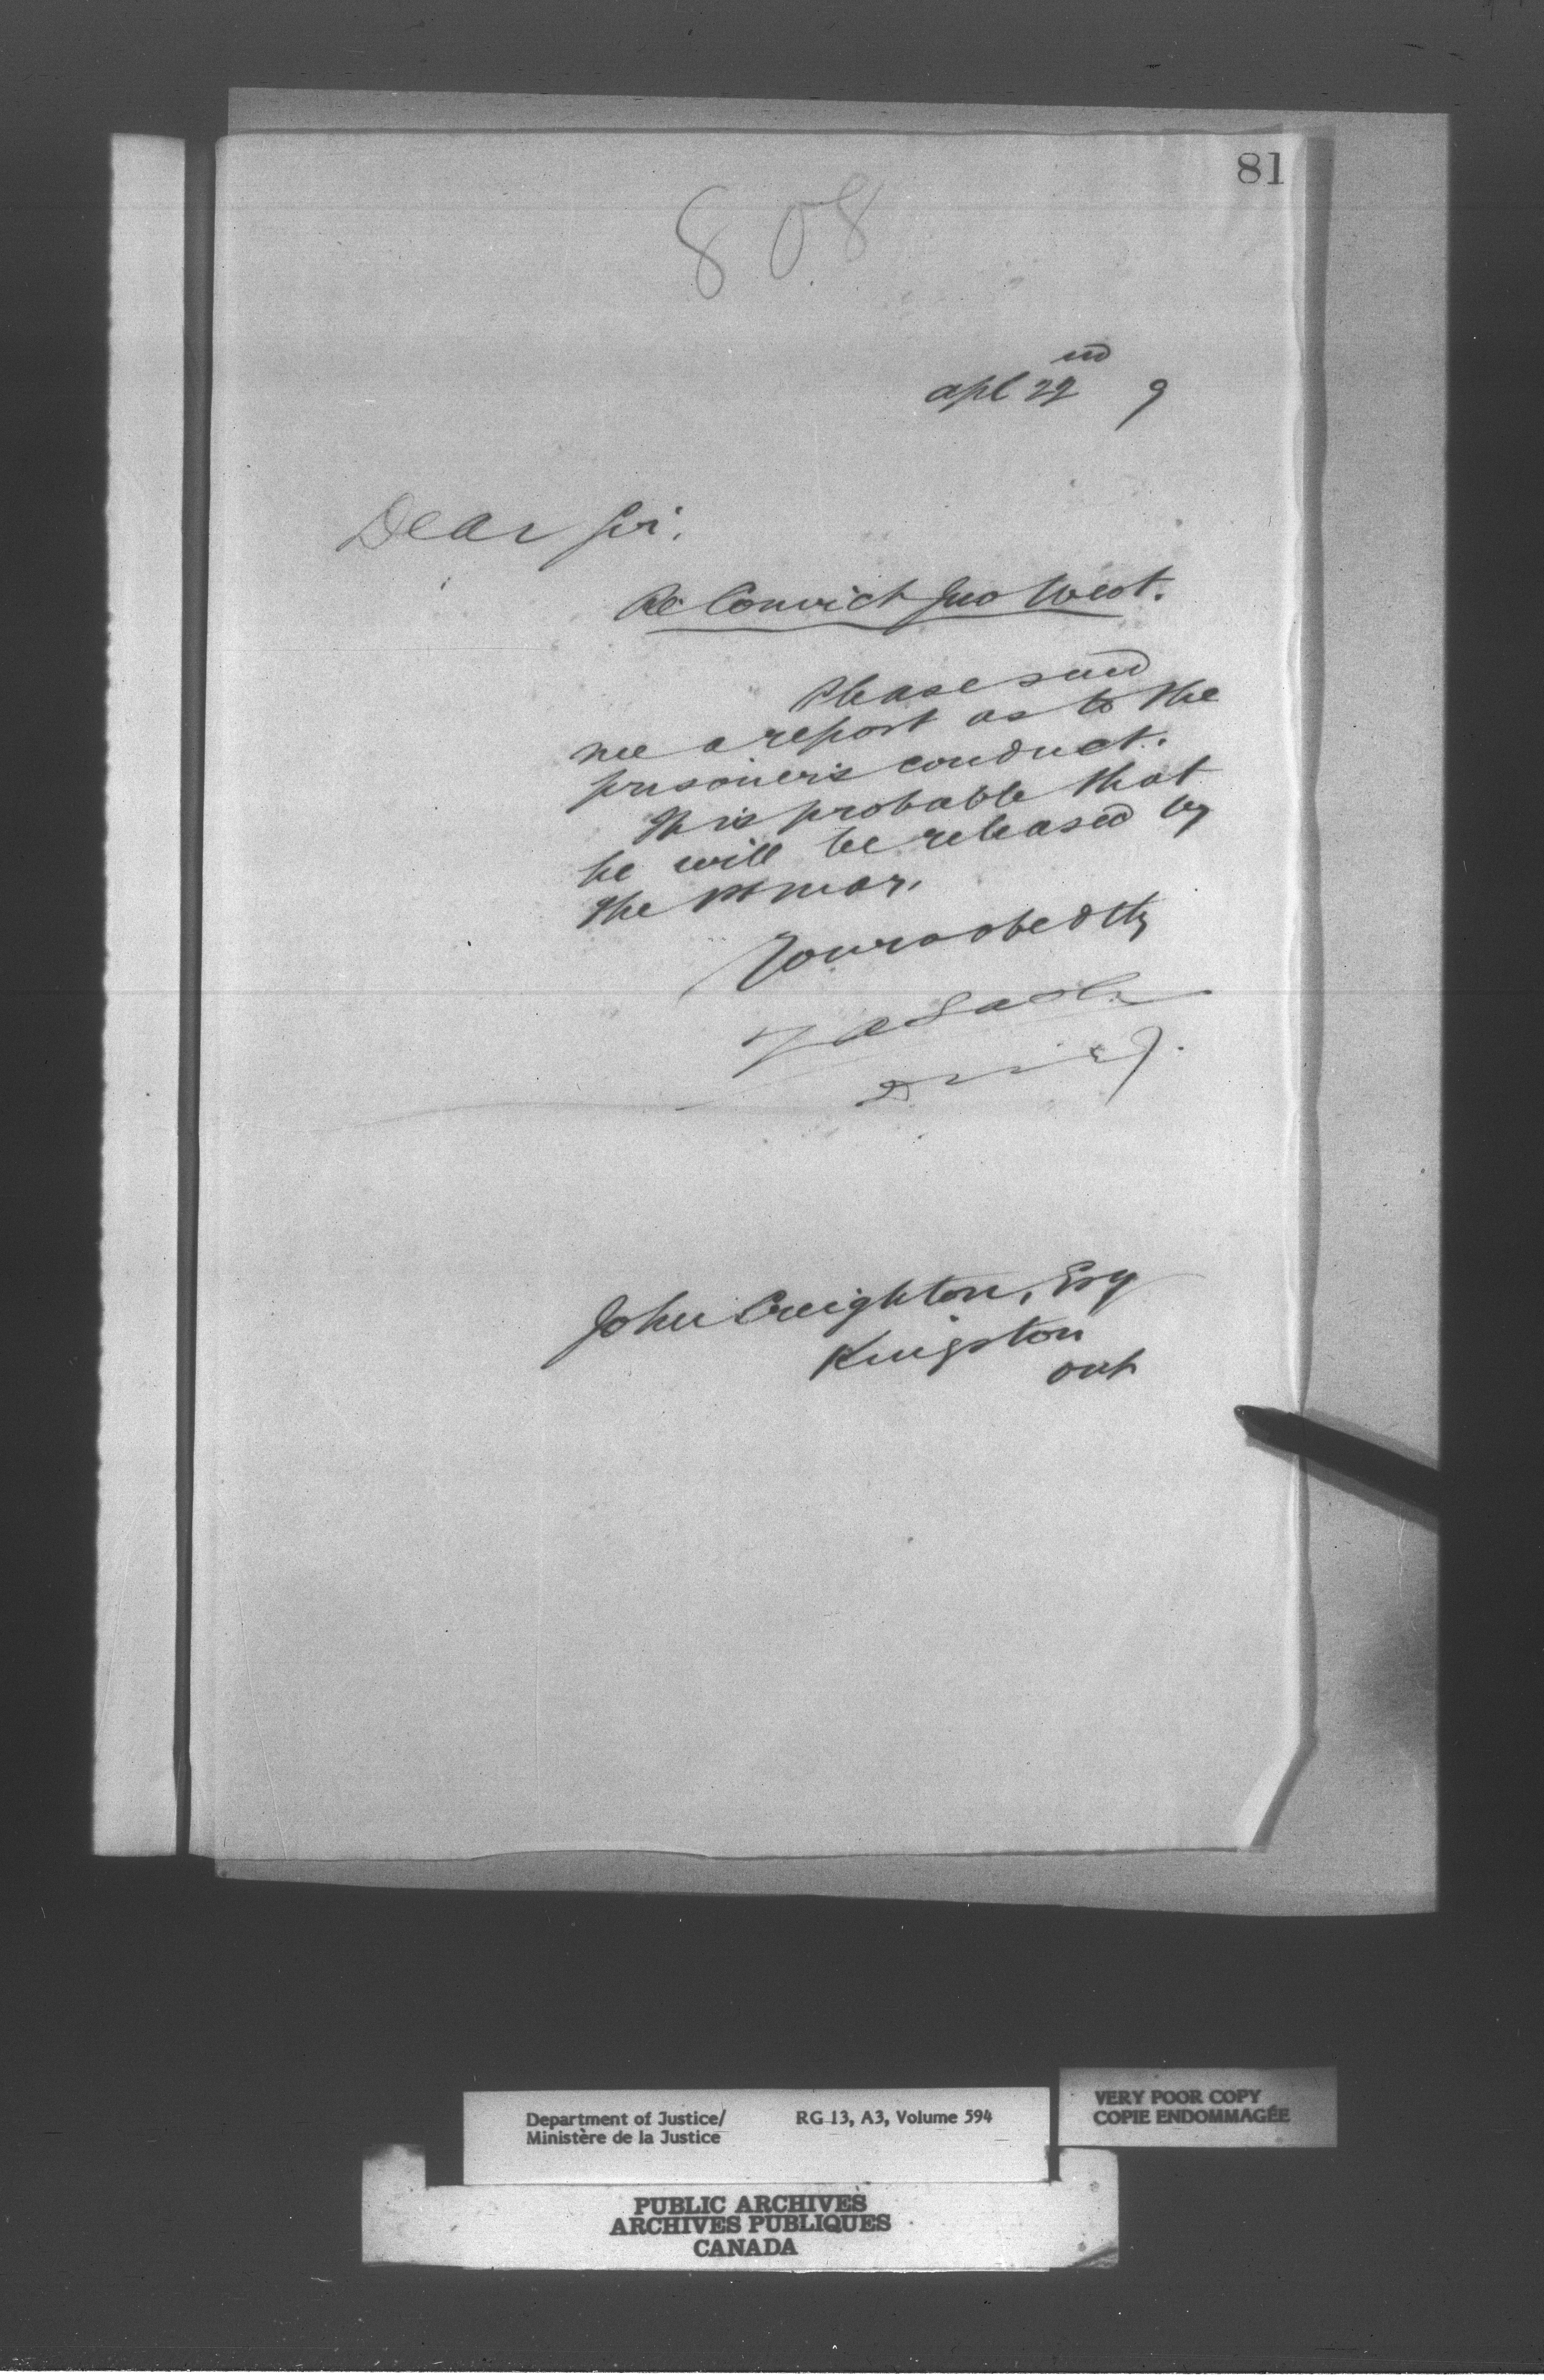 81
808
apl 22nd 9
Dear Sir.
Re Convict Jno West.
Please send
me a report as to the
prisoner's conduct.
It is probable that
he will be released by
the
Yours obedtly
John Creighton, Esq
Kingston
Ont
Department of Justice/ RG 13, A3, Volume 594
Ministère de la Justice
VERY POOR COPY
COPIE ENDOMMAGÉE
PUBLIC ARCHIVES
ARCHIVES PUBLIQUES
CANADA